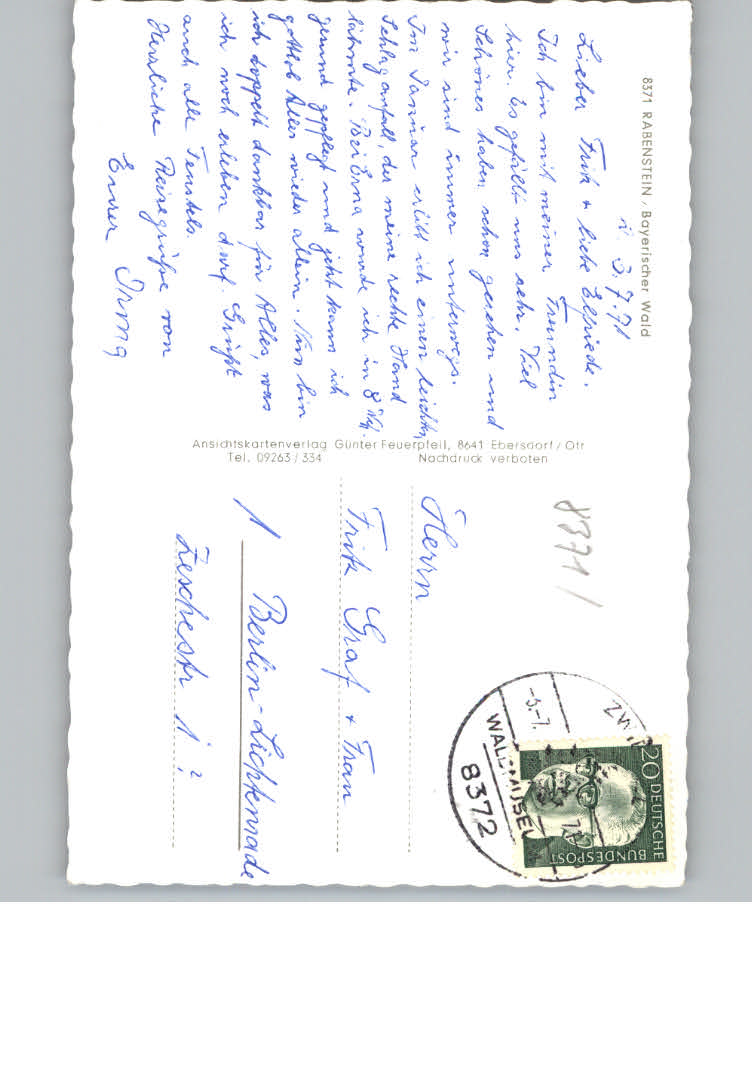 8371 RABENSTEIN, Bayerischer Wald
3.7.71
Lieber Fritz + liebe Elfriede.
Ich bin mit meiner Freundin
hier. Es gefällt uns sehr. Viel
Schönes haben schon gesehen und
wir sind immer unterwegs.
Im Januar erlitt ich einen leichten
Schlaganfall, der meine rechte Hand
lähmte. Bei Erna wurde ich in 8 Wch.
gesund gepflegt und jetzt kann ich
gottlob Alles wieder allein. Nun bin
ich doppelt dankbar für Alles, was
ich noch erleben darf. Grüßt
auch alle
Herzliche Reisegrüße von
Eurer Irma
Ansichtskartenverlag Günter Feuerpfeil, 8641 Ebersdorf / Ofr
Tel. 09263 / 334 Nachdruck verboten
8371/
Herrn
Fritz Graf + Frau
1 Berlin-Lichtenrade
Zeschestr 1
20 DEUTSCHE
BUNDESPOST
-5.-7.
WALDMUSEUM
8372